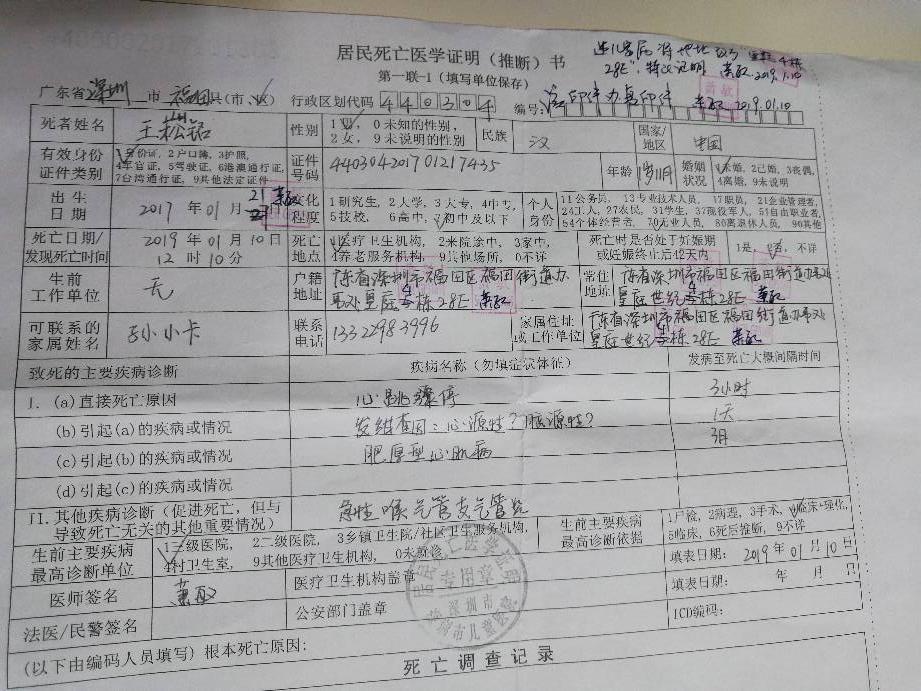 居民死亡医学证明（推断）书
第一联-1（填写单位保存）
广东省深圳市福田县(市、区) 行政区划代码 440304 编号:
2019.1.10
2019.01.10
死者姓名 王 性别 1男, 0未知的性别, 2女, 9未说明的性别 民族 汉 国家/地区 中国
有效身份证件类别 1身份证, 2户口簿, 3护照, 4军官证, 5驾驶证, 6港澳通行证, 7台湾通行证, 9其他法定证件 证件号码 440304201701217435 年龄 1岁11月 婚姻状况 1未婚, 2已婚, 3丧偶, 4离婚, 9未说明
出生日期 2017年01月21 文化程度 1研究生, 2大学, 3大专, 4中专, 5技校, 6高中, 7初中及以下 个人身份 11公务员, 13专业技术人员, 17职员, 21企业管理者, 24工人, 27农民, 31学生, 37现役军人, 51自由职业者, 54个体经营者, 70无业人员, 80离退休人员, 90其他
死亡日期/发现死亡时间 2019年01月10日12时10分 死亡地点 1医疗卫生机构, 2来院途中, 3家中, 4养老服务机构, 9其他场所, 0不详 死亡时是否处于妊娠期或妊娠终止后42天内 1是, 2否, 不详
生前工作单位 无 户籍地址 广东省深圳市福田区福田街道办事处皇庭 栋28E 常住地址 广东省深圳市福田区福田街道办事处皇庭世纪 栋28E
可联系的家属姓名 孙小卡 联系电话 13322983996 家属住址或工作单位 广东省深圳市福田区福田街道办事处皇庭世纪 栋28E
致死的主要疾病诊断 疾病名称（勿填症状体征） 发病至死亡大概间隔时间
I. (a)直接死亡原因 心跳骤停 3小时
(b)引起(a)的疾病或情况 发绀查因：心源性？脑源性？ 1天
(c)引起(b)的疾病或情况 肥厚型心肌病 3月
(d)引起(c)的疾病或情况
II.其他疾病诊断（促进死亡，但与导致死亡无关的其他重要情况） 急性喉气管支气管炎
生前主要疾病最高诊断单位 1三级医院, 2二级医院, 3乡镇卫生院/社区卫生服务机构, 4村卫生室, 9其他医疗卫生机构, 0未就诊 生前主要疾病最高诊断依据 1尸检, 2病理, 3手术, 4临床+理化, 5临床, 6死后推断, 9不详
医师签名 医疗卫生机构盖章 填表日期: 2019年01月10日
法医/民警签名 公安部门盖章 填表日期: 年 月 日
ICD编码:
专用章
深圳市儿童医院
(以下由编码人员填写) 根本死亡原因:
死亡调查记录